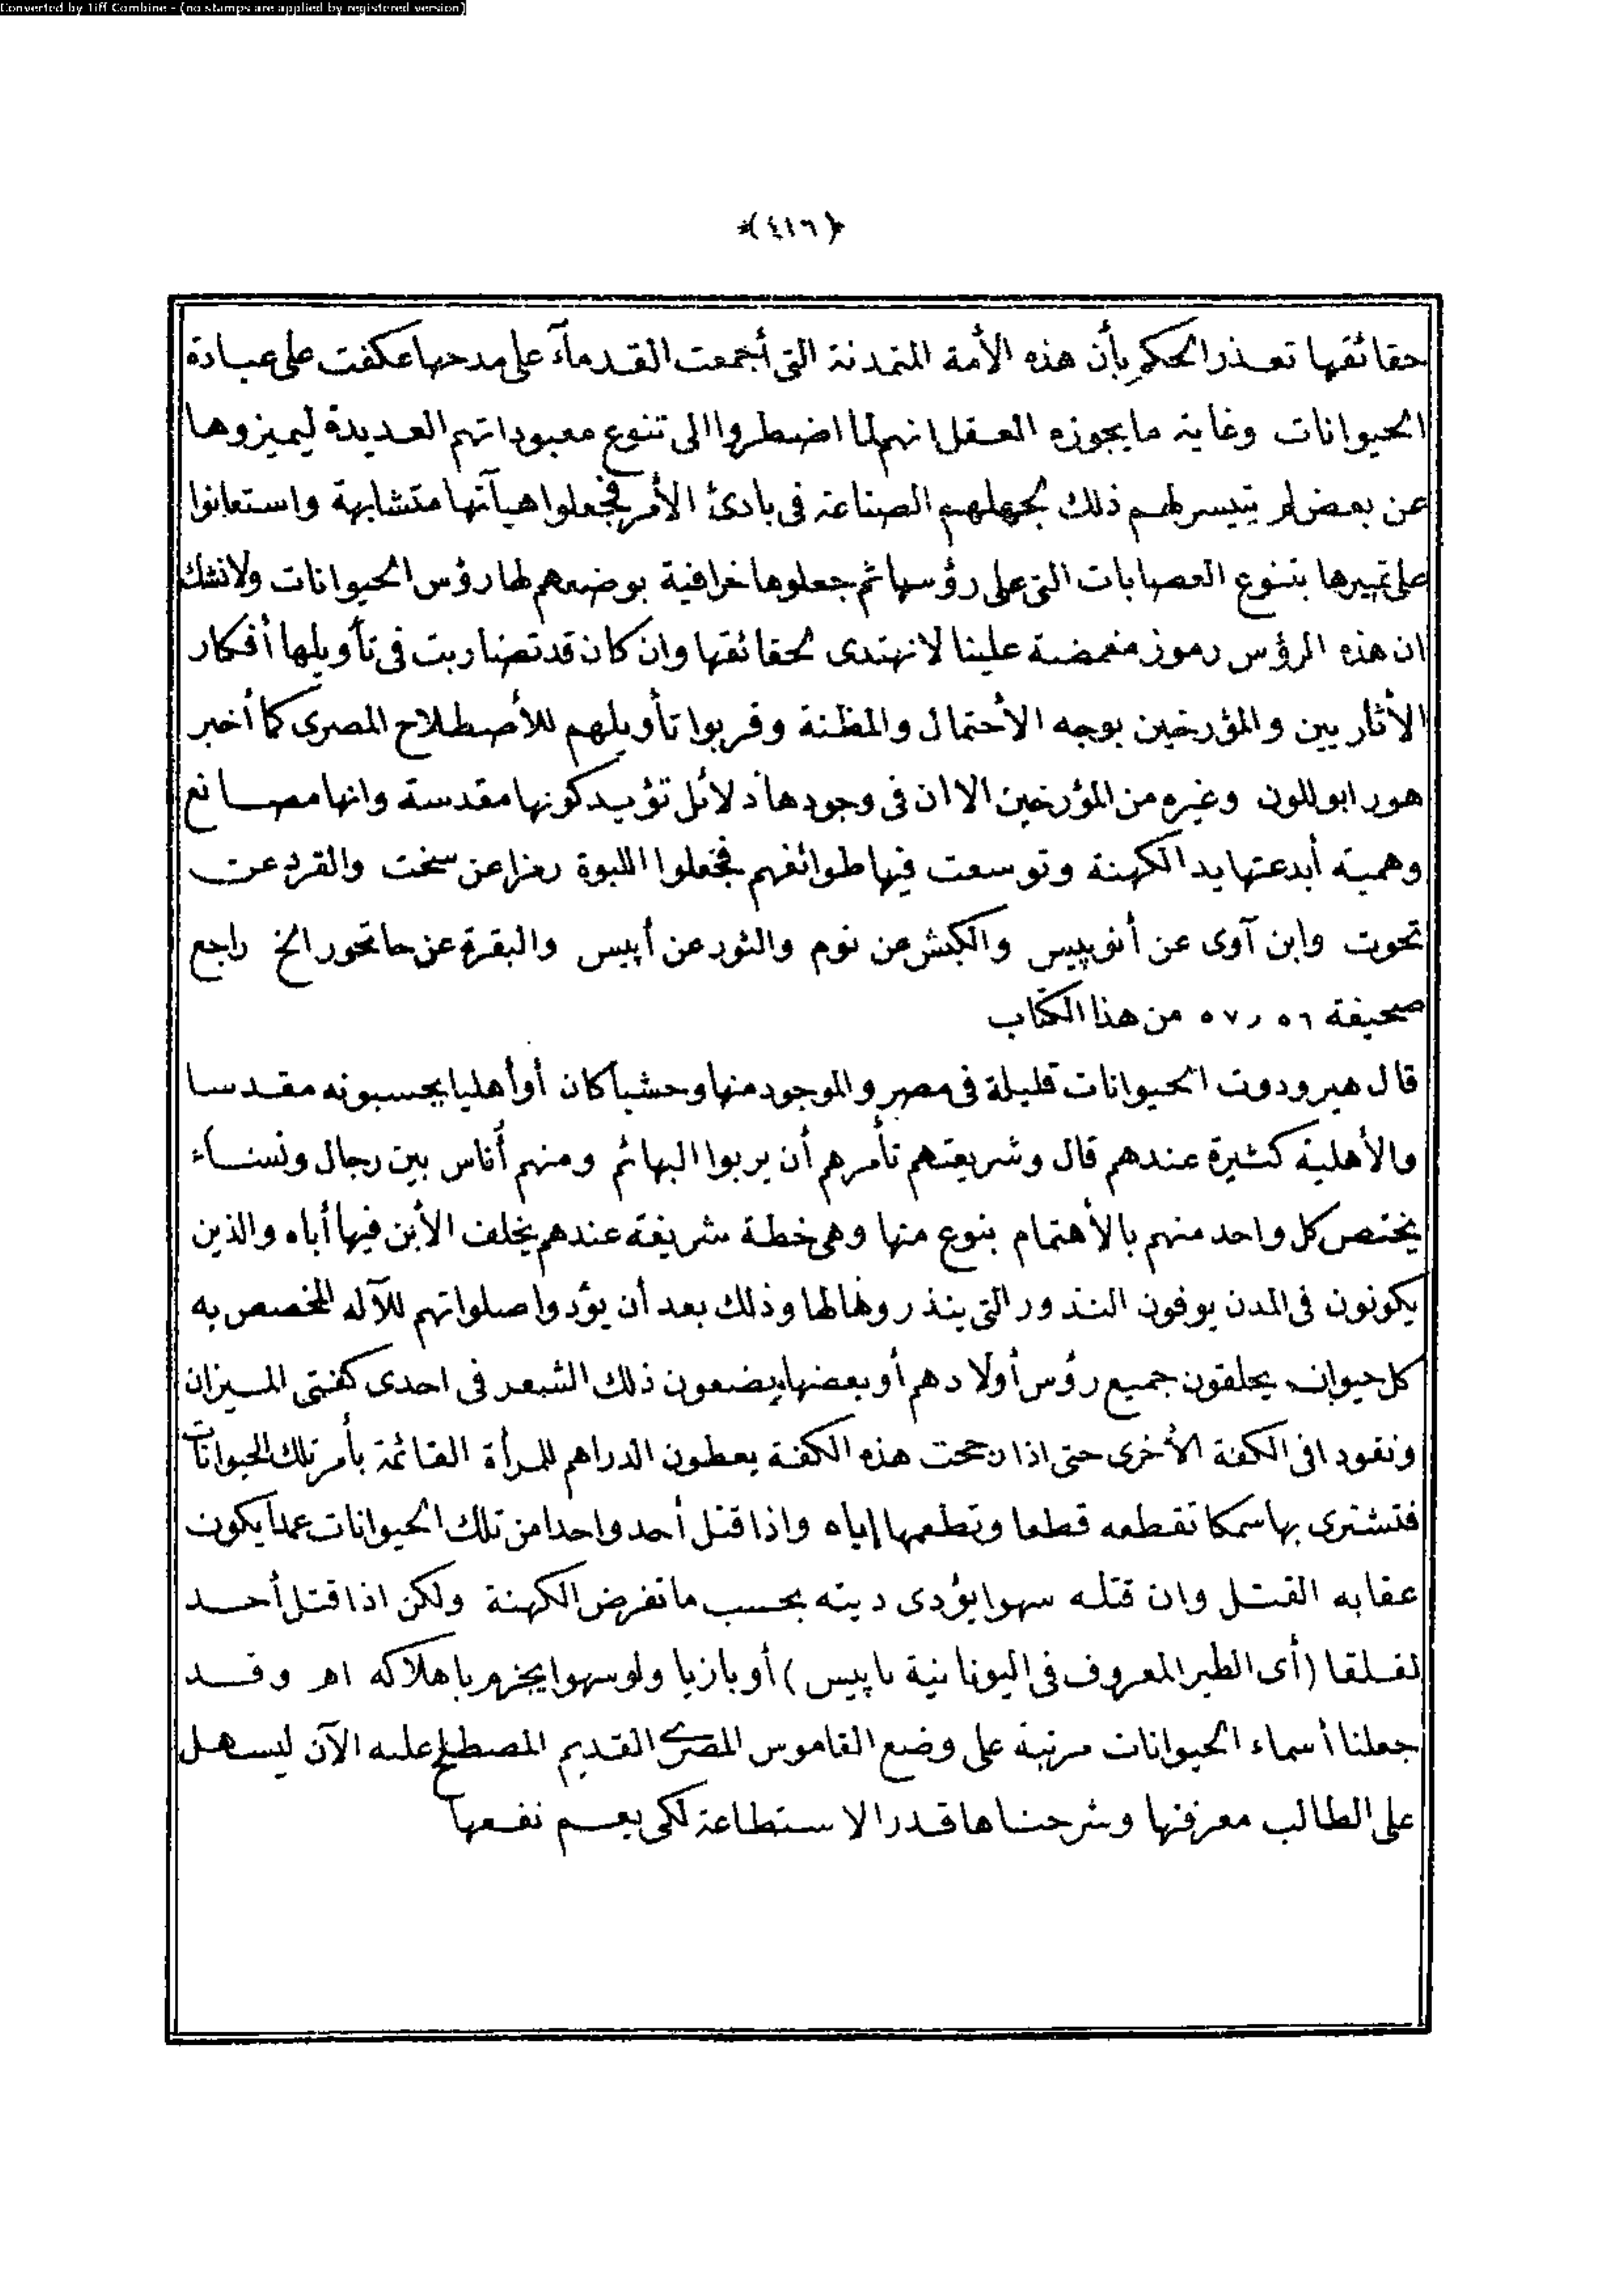 Converted by Tiff Combine - (no stamps are applied by registered version)
﴿٤١٦﴾
حقائقها تعذر الحكم بأن هذه الأمة المتمدنة التى أجمعت القدمآء على مدحها عكفت على عبادة
الحيوانات وغاية ما يجوزه العقل انهم لما اضطروا الى تنوع معبوداتهم العديدة ليميزوها
عن بعض لم يتيسر لهم ذلك لجهلهم الصناعة فى بادئ الأمر فجعلوا هيآتها متشابهة واستعانوا
على تمييزها بتنوع العصابات التى على رؤسها ثم جعلوها خرافية بوضعهم لها رؤس الحيوانات ولا نشك
ان هذه الرؤس رموز مغمضة علينا لا نهتدى لحقائقها وان كان قد تضاربت فى تأويلها أفكار
الأثاريين والمؤرخين بوجه الأحتمال والمظنة وقربوا تأويلهم للأصطلاح المصرى كما أخبر
هور ابوللون وغيره من المؤرخين الا ان فى وجودها دلائل تؤيد كونها مقدسة وانها مصانع
وهمية أبدعتها يد الكهنة وتوسعت فيها طوائفهم فجعلوا اللبوة رمزا عن سخت والقرد عن
تحوت وابن آوى عن أنوبيس والكبش عن نوم والثور عن أبيس والبقرة عن حاتحور الخ راجع
صحيفة ٥٦ و ٥٧ من هذا الكتاب
قال هيرودوت الحيوانات قليلة فى مصر والموجود منها وحشيا كان أو أهليا يحسبونه مقدسا
والأهلية كثيرة عندهم قال وشريعتهم تأمرهم أن يربوا البهائم ومنهم أناس بين رجال ونساء
يختص كل واحد منهم بالأهتمام بنوع منها وهى خطة شريفة عندهم يخلف الأبن فيها أباه والذين
يكونون فى المدن يوفون النذور التى ينذروها لها وذلك بعد أن يؤدوا صلواتهم للآله المخصص به
كل حيوان يحلقون جميع رؤس أولادهم أو بعضها يضعون ذلك الشعر فى احدى كفتى الميزان
ونقودا فى الكفة الأخرى حتى اذا رجحت هذه الكفة يعطون الدراهم للمرأة القائمة بأمر تلك الحيوانات
فتشترى بها سمكا تقطعه قطعا وتطعمها إياه واذا قتل أحد واحدا من تلك الحيوانات عمدا يكون
عقابه القتل وان قتله سهوا يؤدى ديته بحسب ما تفرض الكهنة ولكن اذا قتل أحد
لقلقا (أى الطير المعروف فى اليونانية بابيس) أو بازيا ولو سهوا يجزم باهلاكه اهـ وقد
جعلنا أسماء الحيوانات مرتبة على وضع القاموس المصرى القديم المصطلح عليه الآن ليسهل
على الطالب معرفتها وشرحناها قدر الاستطاعة لكى يعم نفعها